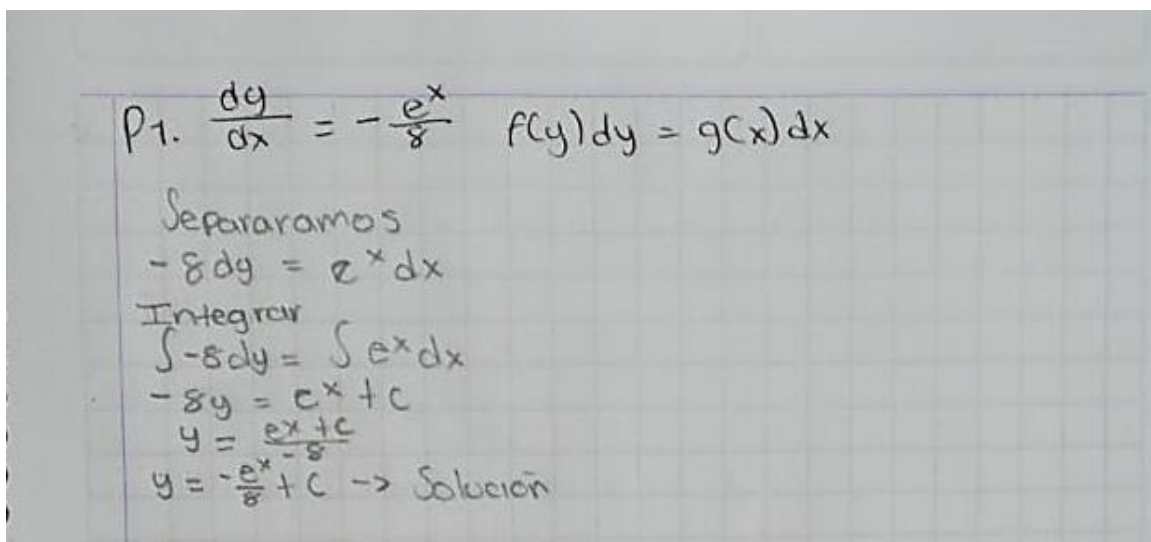 P1. dy/dx = - e^x/8 f(y)dy = g(x)dx
Separaramos
-8dy = e^x dx
Integrar
∫-8dy = ∫e^x dx
-8y = e^x + c
y = e^x + c/-8
y = -e^x/8 + C -> Solución